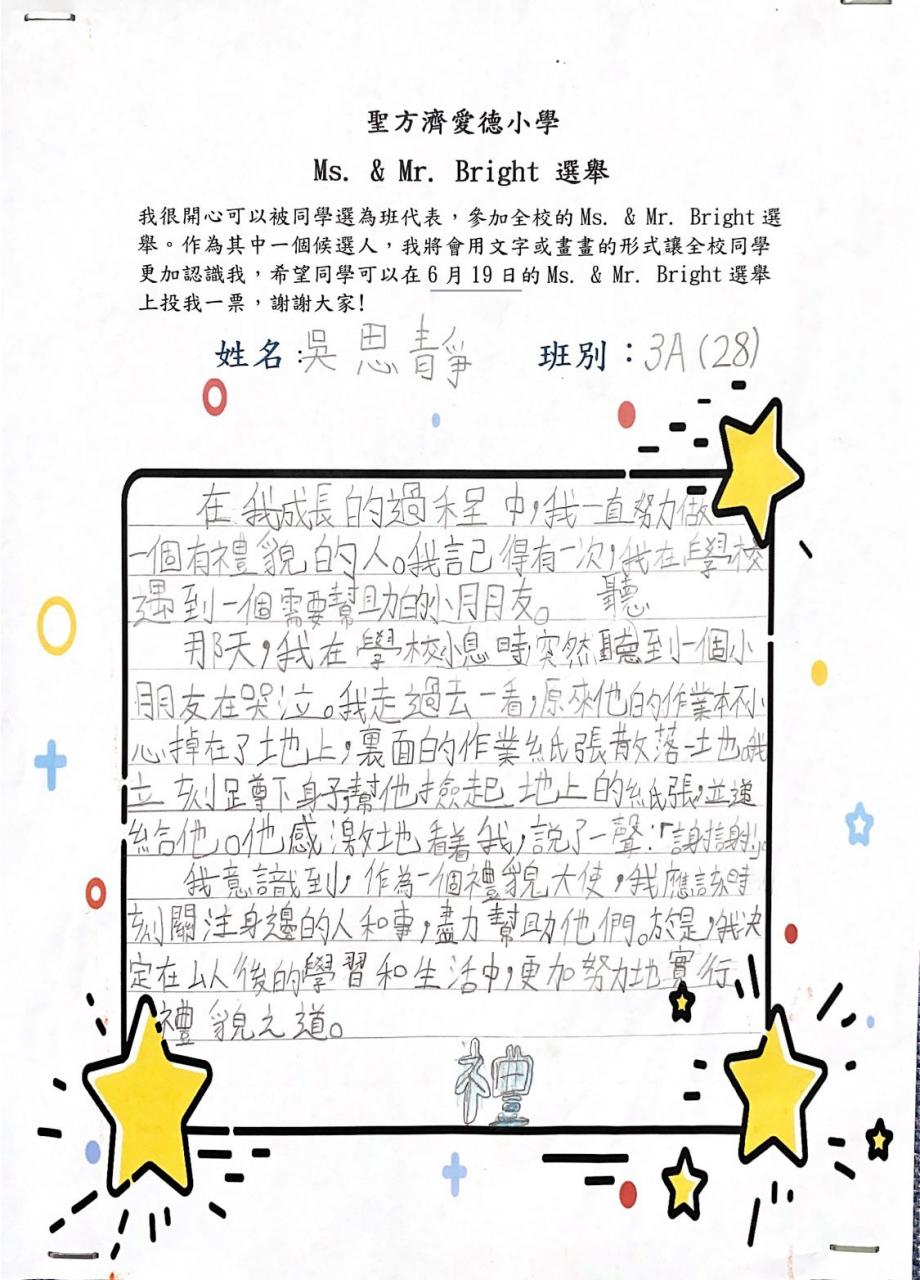 聖方濟愛德小學
Ms. & Mr. Bright 選舉
我很開心可以被同學選為班代表，參加全校的Ms. & Mr. Bright選
舉。作為其中一個候選人，我將會用文字或畫畫的形式讓全校同學
更加認識我，希望同學可以在6月19日的Ms. & Mr. Bright選舉
上投我一票，謝謝大家!
姓名:吳思靜 班別：3A(28)
在我成長的過程中，我一直努力做
一個有禮貌的人。我記得有一次，我在學校
遇到一個需要幫助的小朋友。 聽
那天，我在學校小息時突然聽到一個小
朋友在哭泣。我走過去一看，原來他的作業本不小
心掉在了地上，裏面的作業紙張散落一地。我
立刻蹲下身子幫他撿起地上的紙張，並遞
給他。他感激地看着我，說了一聲：「謝謝！」。
我意識到，作為一個禮貌大使，我應該時
刻關注身邊的人和事，盡力幫助他們。於是，我決
定在以後的學習和生活中，更加努力地實行
禮貌之道。
禮